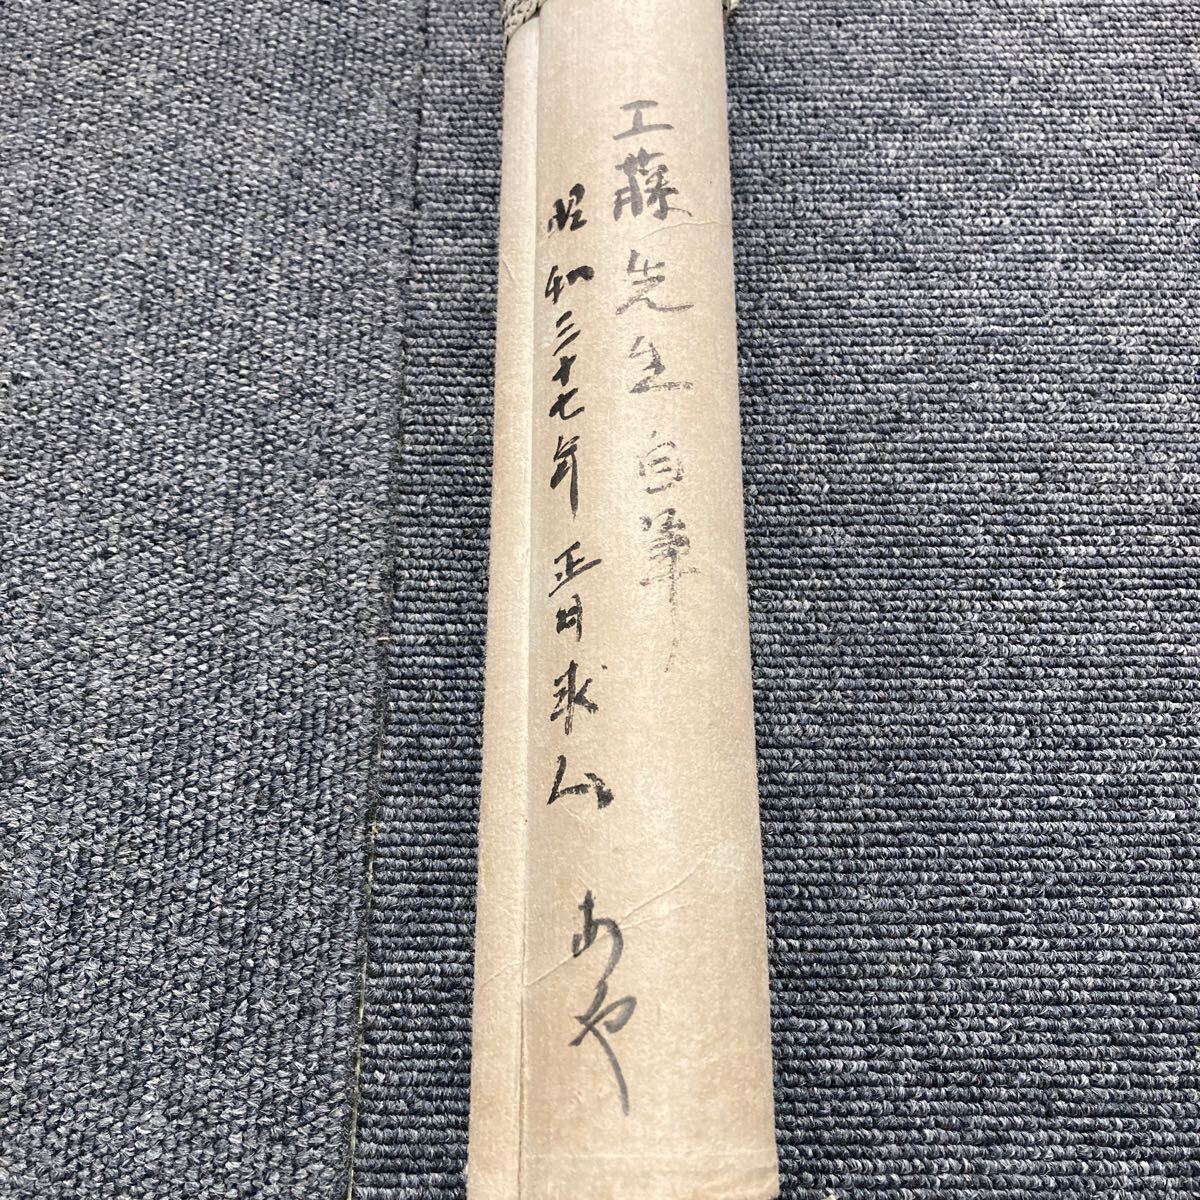 工藤先生自筆
昭和三十七年正月求む
あや